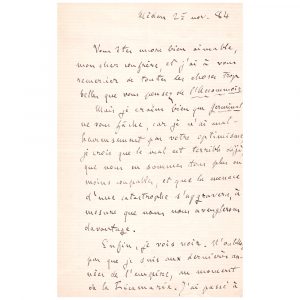 Médan 25 nov. 84
Vous êtes mon bien aimable,
mon cher confrère et j'ai à vous
remercier de toutes les choses trop
belles que vous pensez de l'Assommoir.
Mais je crains bien que Germinal
ne vous fâche, car je n'ai mal-
heureusement pas votre optimisme
je crois que le mal est terrible déjà
que nous en sommes tous plus ou
moins coupables, et que la menace
d'une catastrophe s'aggravera, à
mesure que nous nous aveuglerons
davantage.
Enfin, je vois noir. N'oubliez
pas que je suis aux dernières an-
nées de l'empire, au moment
de la Ricamarie. J'ai passé à